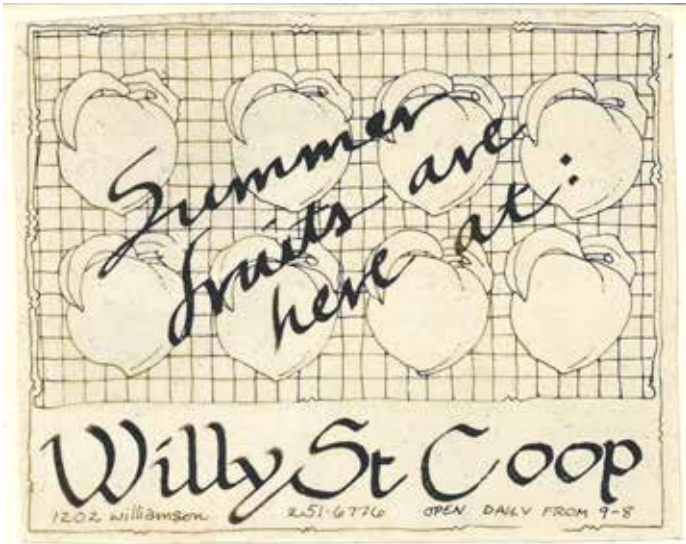 Summer are
fruits
here at:
Willy St Coop
1202 williamson 251-6776 OPEN DAILY FROM 9-8